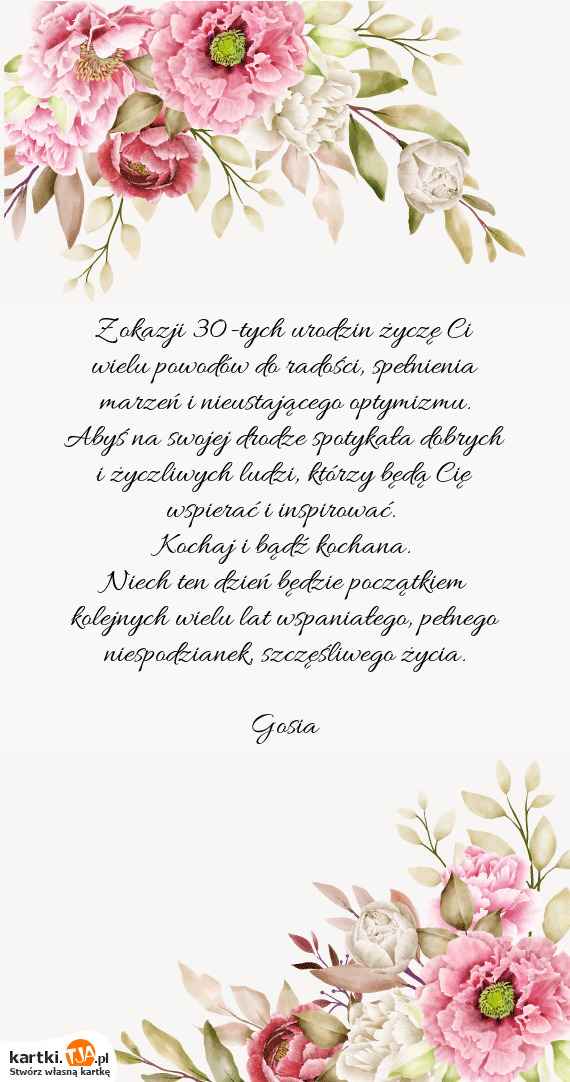 Z okazji 30-tych urodzin życzę Ci
wielu powodów do radości, spełnienia
marzeń i nieustającego optymizmu.
Abyś na swojej drodze spotykała dobrych
i życzliwych ludzi, którzy będą Cię
wspierać i inspirować.
Kochaj i bądź kochana.
Niech ten dzień będzie początkiem
kolejnych wielu lat wspaniałego, pełnego
niespodzianek, szczęśliwego życia.
Gosia
kartki.TJA.pl
Stwórz własną kartkę